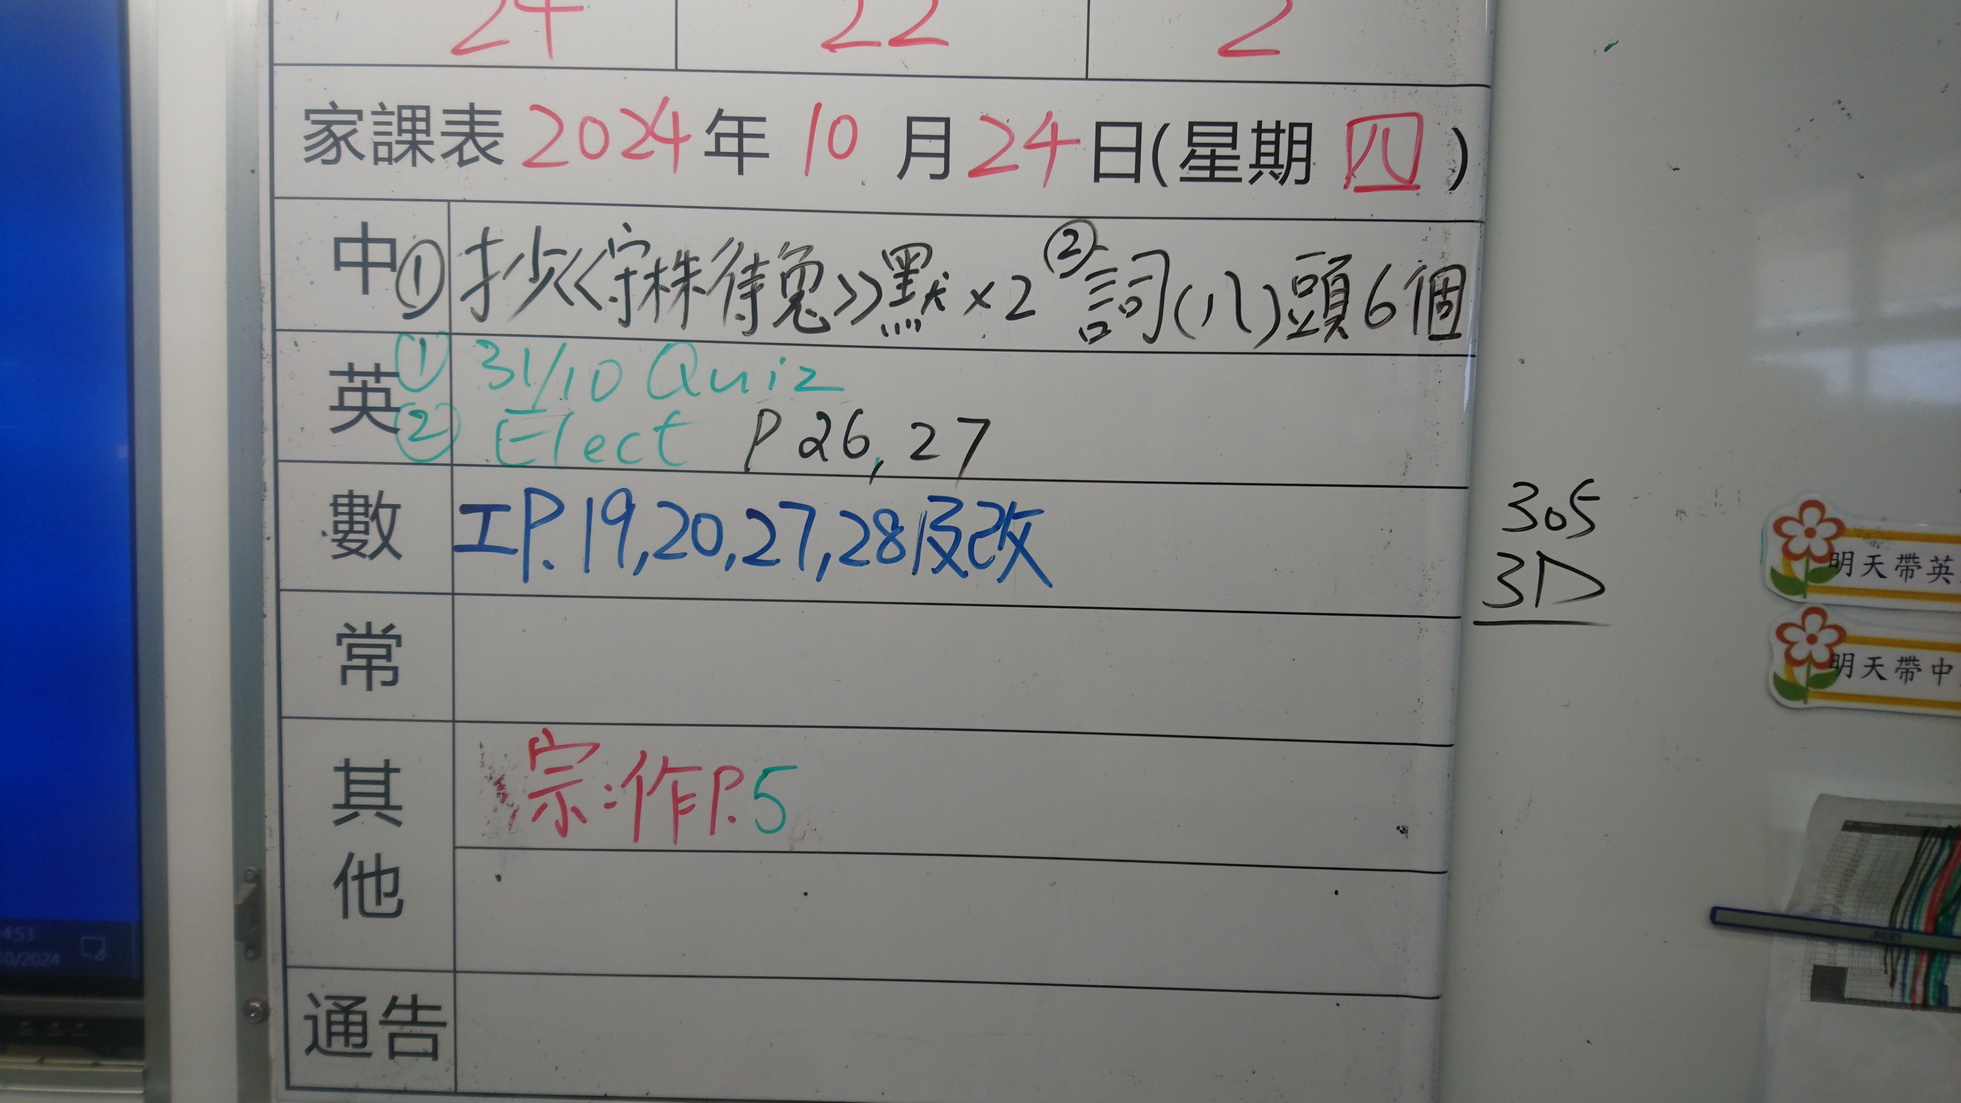 24 22 2
家課表 2024年 10 月 24日(星期 四)
中 ① 抄《守株待兔》默×2 ② 詞(八)頭6個
英 ① 31/10 Quiz
② Elect P 26, 27
數 工P.19,20,27,28及改
常
其他
宗:作P.5
通告
305
3D
明天帶英
明天帶中